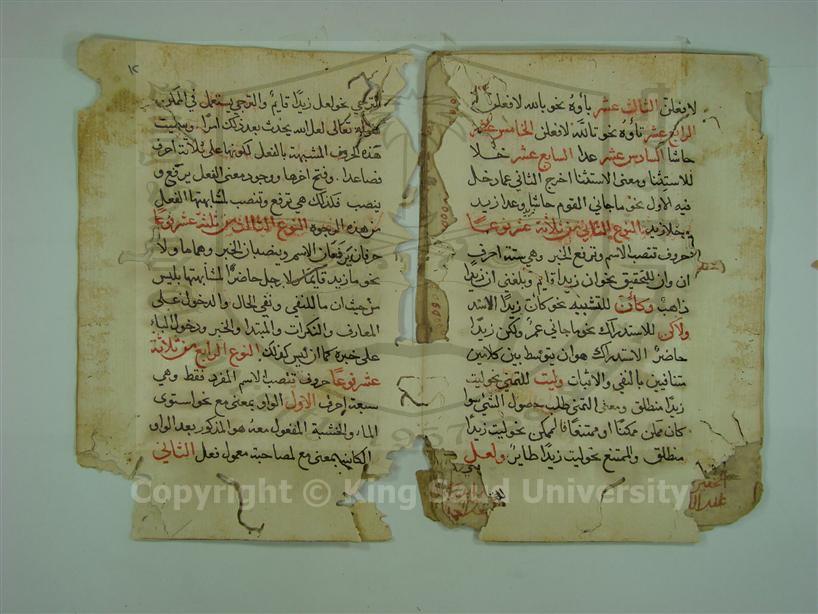 لافعلن الثالث عشر باؤه نحو بالله لافعلن
الرابع عشر تاؤه نحو تالله لافعلن الخامس عشر
حاشا السادس عشر عدا السابع عشر خلا
للاستثنا ومعنى الاستثنا اخرج الثاني عما دخل
فيه الاول نحو ماجاني القوم حاشا وعدا زيد
وخلا زيد النوع الثاني من ثلاثة عشر نوعا
حروف تنصب الاسم وترفع الخبر وهي ستة احرف
ان وان للتحقيق نحو ان زيدا قائم وبلغني ان زيدا
ذاهب وكأن للتشبيه نحو كان زيدا الاسد
ولاكن للاستدراك نحو ماجاني عمر ولكن زيدا
حاضر الاستدراك هو ان يتوسط بين كلامين
متنافين بالنفي والاثبات وليت للتمني نحو ليت
زيدا منطلق ومعنى التمني طلب حصول الشي سوا
كان ممكنا او ممتنعا فالممكن نحو ليت زيدا
منطلق والممتنع نحو ليت زيدا طاير ولعل
١٢
الترجي نحو لعل زيدا قايم والترجي يستعمل في الممكن
كقوله تعالى لعل الله يحدث بعد ذلك امرا وسميت
هذه الحروف المشبهة بالفعل لكونها على ثلاثة احرف
فصاعدا وفتح اخرها ووجود معنى الفعل يرفع و
ينصب فكذلك هي ترفع وتنصب لمشابهتها الفعل
من هذه الوجوه النوع الثالث من ثلثة عشر نوعا
حرفان يرفعان الاسم وينصبان الخبر وهما ما ولا
نحو ما زيد قايما ولا رجل حاضرا لمشابهتها بليس
من حيث ان ما للنفي ونفي الحال والدخول على
المعارف والنكرات والمبتدا والخبر ودخول الباء
على خبره كما ان ليس كذلك النوع الرابع من ثلاثة
عشر نوعا حروف تنصب الاسم المفرد فقط وهي
سبعة احرف الاول الواو بمعنى مع نحو استوى
الماء والخشبة المفعول معه هو المذكور بعد الواو
الكاينة بمعنى مع لمصاحبة معمول فعل الثاني
Copyright © King Saud University
1957